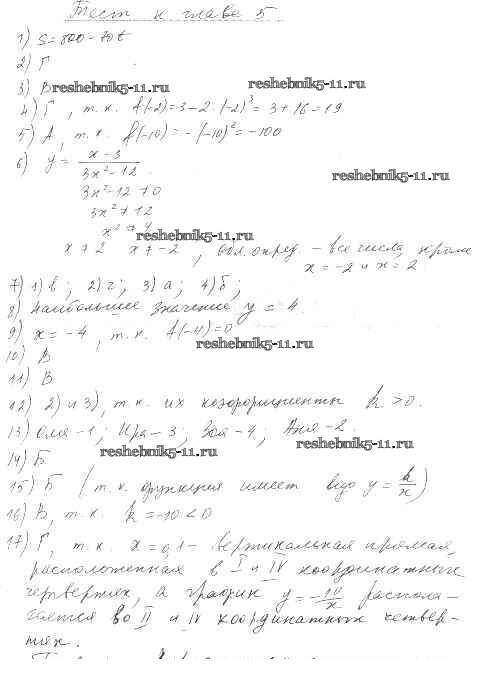 Тест к главе 5
1) S = 800 - 70t
2) Г
3) В reshebnik5-11.ru reshebnik5-11.ru
4) Г, т.к. f(-2) = 3 - 2·(-2)³ = 3 + 16 = 19
5) А, т.к. f(-10) = -(-10)² = -100
6) y = (x - 3)/(3x² - 12)
reshebnik5-11.ru
3x² - 12 ≠ 0
3x² ≠ 12
x² ≠ 4
reshebnik5-11.ru
x ≠ 2 x ≠ -2, обл. опред. - все числа, кроме
x = -2 и x = 2
7) 1) в; 2) г; 3) а; 4) б;
8) наибольшее значение y = 4.
9) x = -4, т.к. f(-4) = 0
reshebnik5-11.ru
10) В
11) В
12) 2) и 3), т.к. их коэффициенты k > 0.
13) Оля - 1; Ира - 3; Зоя - 4; Аня - 2.
reshebnik5-11.ru reshebnik5-11.ru
14) Б
15) Б (т.к. функция имеет вид y = k/x)
16) В, т.к. k = -10 < 0
17) Г, т.к. x = 0,1 - вертикальная прямая,
расположенная в I и IV координатных
четвертях, а график y = -10/x распола-
гается во II и IV координатных четвер-
тях.